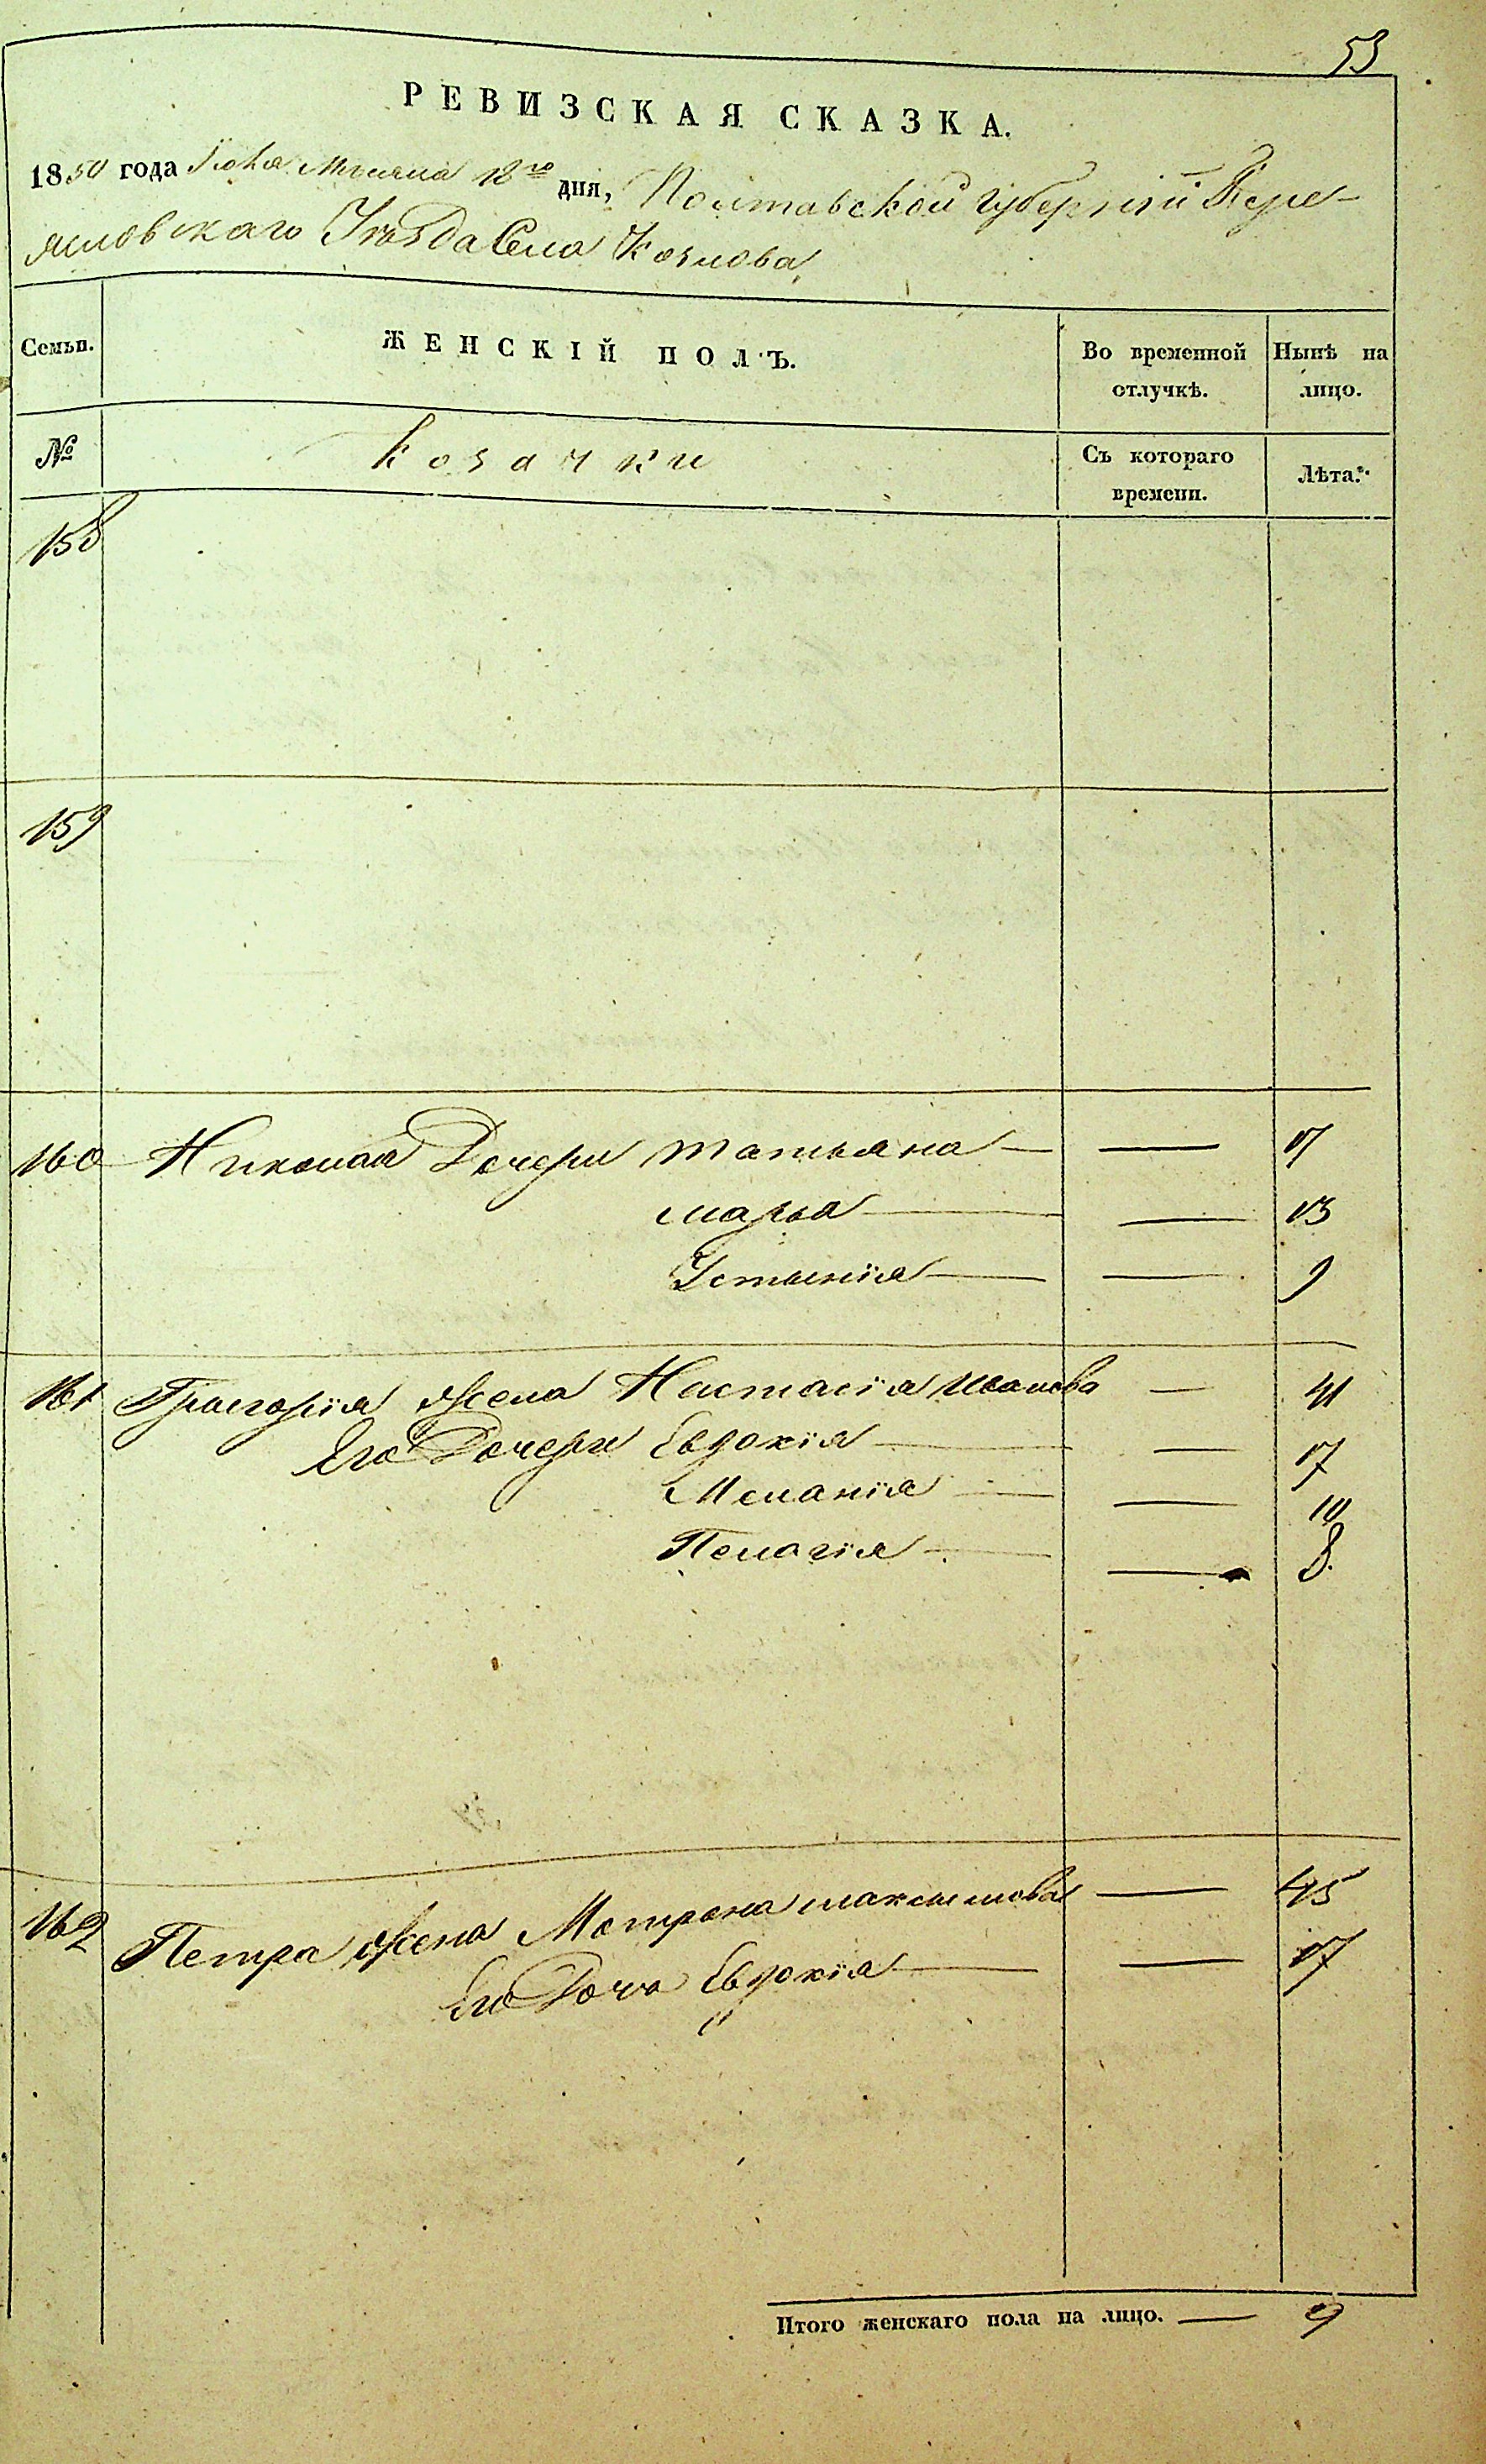 53
РЕВИЗСКАЯ СКАЗКА.
1850 года Іюня Мѣсяца 18го дня, Полтавской губерніи Пере-
яславскаго Уѣзда Села Козлова
Семьи. ЖЕНСКІЙ ПОЛЪ. Во временной отлучкѣ. Нынѣ на лицо.
№ Козачки Съ котораго времени. Лѣта.
158
159
160 Николая Дочери Татьяна — — 17
Марья — — 13
Устинія — — 9
161 Григорія Жена Настасія Иванова — 41
Его Дочери Евдокія — — 17
Меланія — — 10
Пелагія — — 8.
162 Петра Жена Мотрона Максимова — 45
Его Дочь Евдокія — — 17
Итого женскаго пола на лицо. — 9